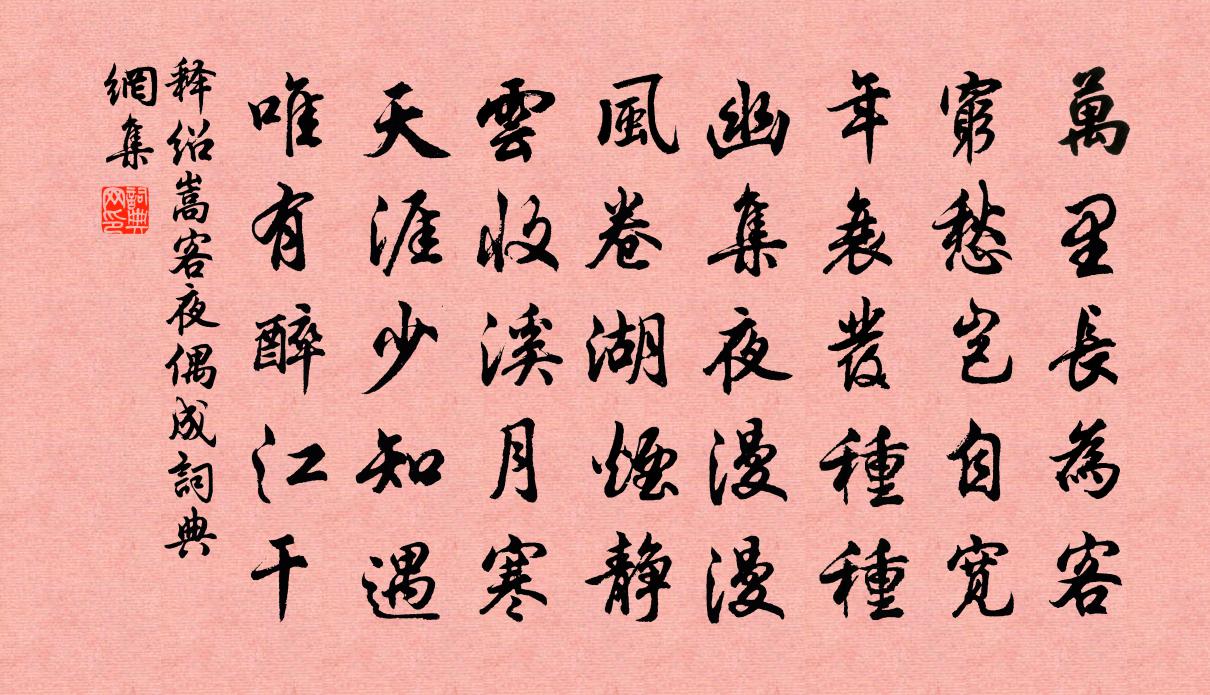 萬里長為客
窮愁豈自寬
年衰發種種
幽集夜漫漫
風卷湖煙静
雲收溪月寒
天涯少知遇
唯有醉江干
释绍嵩客夜偶成詞典
網集
詞典
网印